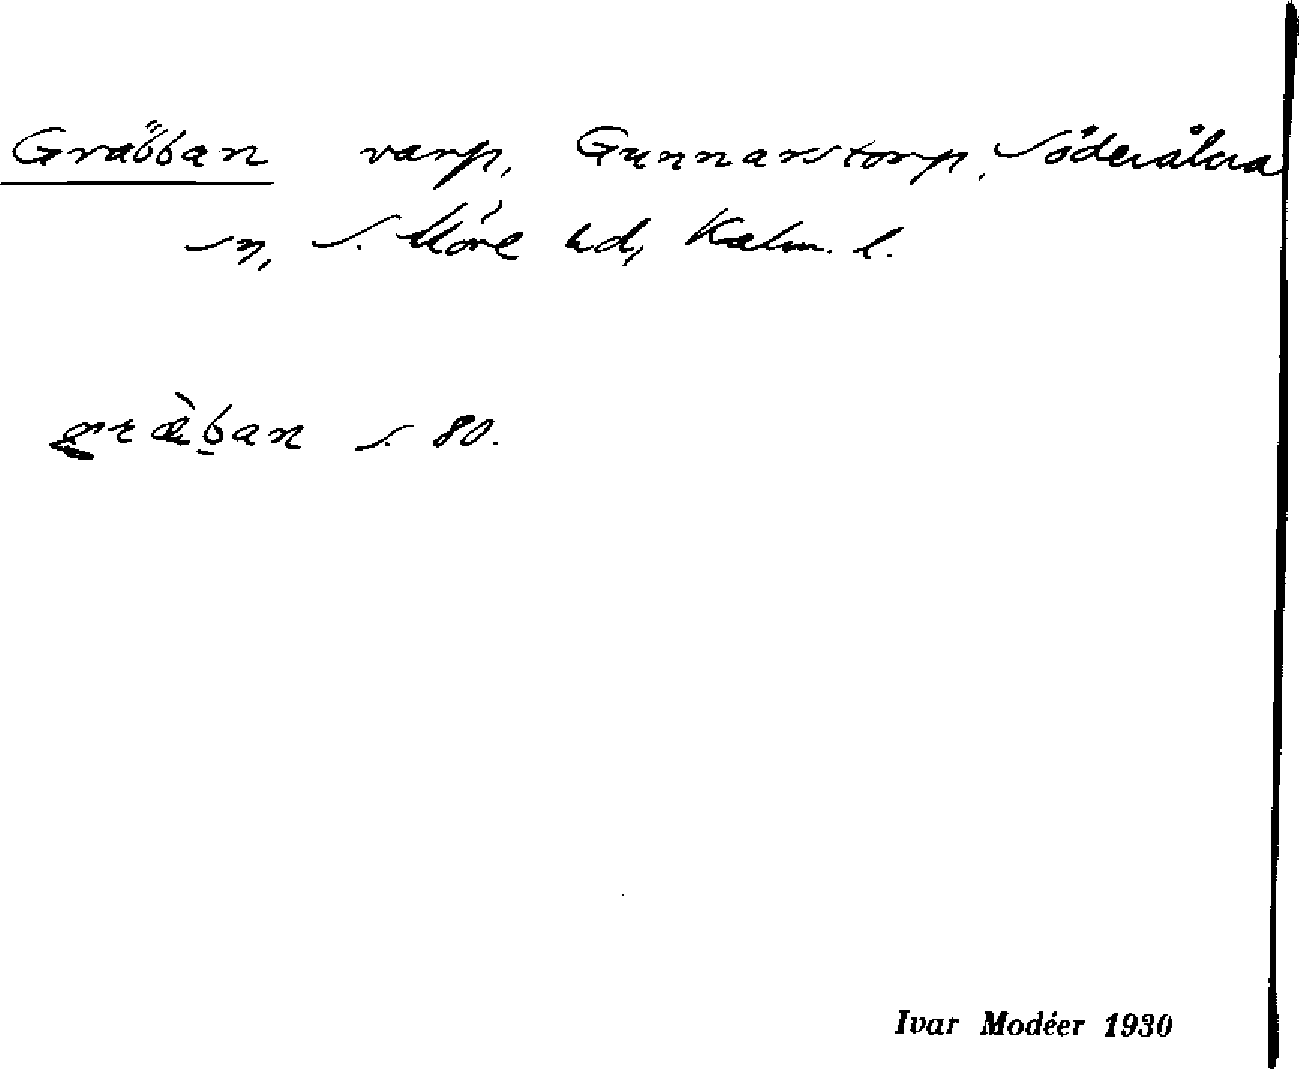 Gräbban varp, Gunnarstorp, Söderåkra
sn, S. Möre hd, Kalm. l.
græ̀ban s. 80.
Ivar Modéer 1930